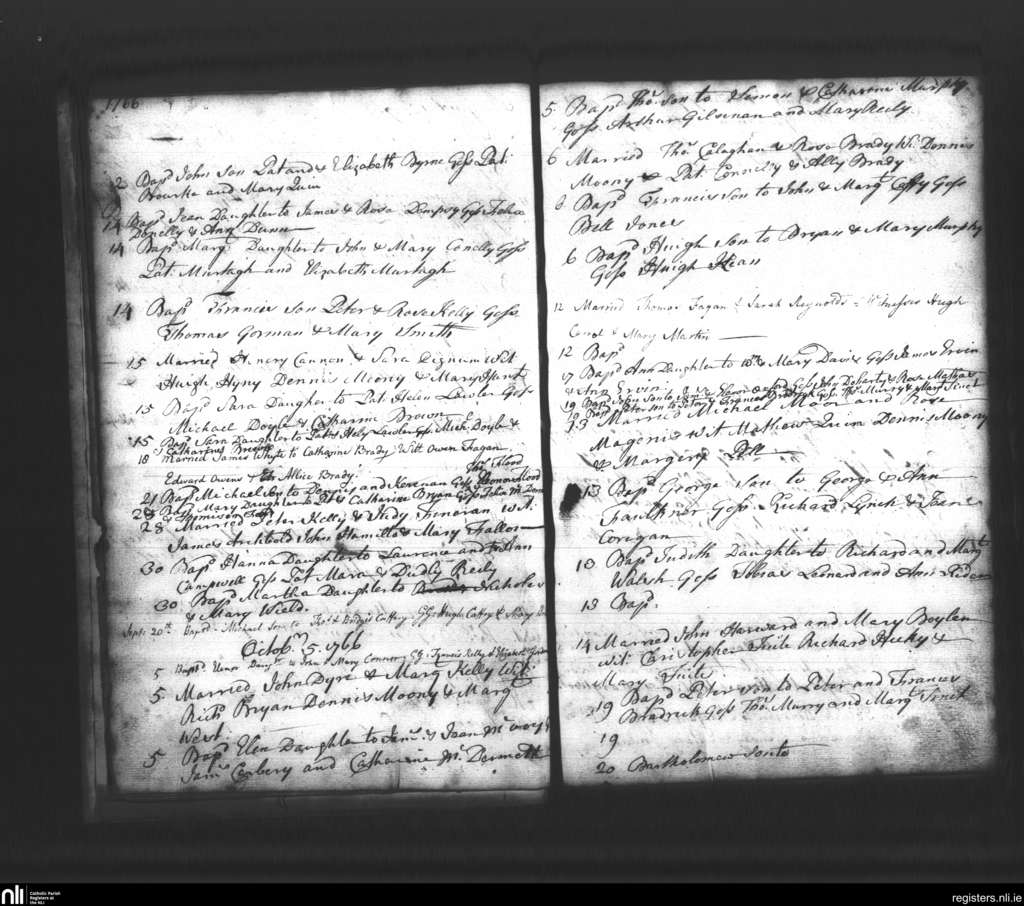 1766
12 Bapd John Son Pat and Elizabeth Byrne Goss Pat
Rourke and Mary Quin
14 Bapd Jean Daughter to James & Rosa Dempsy Goss Felix
Donelly & Ann Dunn
14 Bapd Marg Daughter to John & Mary Conelly Goss
Pat Murtagh and Elizabeth Murtagh
14 Bapd Francis Son Peter & Rose Kelly Goss
Thomas Gorman & Mary Smith
15 Married Henery Cannon & Sara Dignum Wit
Hugh Dennis Moony & Mary
15 Bapd Sara Daughter to Pat Helen Lawler Goss
Michael Doyle & Catharine Brown
15 Bapd Sara Daughter to Patk Lawler Goss Mich. Doyle &
Catharine Brown
18 Married James Whyte to Catharine Brady Witt Owen Fagan
Edward Owens & Allice Brady
Flood
21 Bapd Michael Son to and Goss Flood
28 Bapd Mary Daughter to & Catharine Bryan Goss
28 Married Peter Kelly & Judy Finoran Wt
James Archbold John Hamilton & Mary Fallon
30 Bapd Hanna Daughter to Laurence and Ann
Campwell Goss Pat Mara & Dudly Reily
30 Bapd Martha Daughter to Nicholas
& Mary Wield
Sept. 20th Bapd Michael Son to Thos & Bridget Caffery Hugh Caffry & Mary
Octobr 5 1766
5 Bapd Daugh to John & Mary Connor Francis Kelly & Elizabeth
5 Married John Dyre & Marg Kelly Wit
Richd Bryan Dennis Moony & Marg
West
5 Bapd Elen Daughter to & Jean
Jams Carbery and Catharine Mc Dermott
5 Bapd Thos Son to Simon & Catharine Murphy
Goss Arthur Gilsenan and Mary Reily
6 Married Thos Calaghan & Rose Brady Wt Dennis
Moony & Pat Connelly & Ally Brady
6 Bapd Francis Son to John & Margt Caffry Goss
Bell Jones
6 Bapd Hugh Son to Bryan & Mary Murphy
Goss Hugh Kean
12 Married Thomas Fagan & Sarah Reynolds - Witnesses Hugh
Carrol & Mary Martin
12 Bapd
17 Bapd Ann Daughter to Wm & Mary Davis Goss James Ervin
& Ann Ervin
19 Bapd John Son to Goss John Doharty & Rose
19 Bapd Peter son to Peter & Frances Bradrick Goss Thos Murry & Margt Sinet
13 Married Michael Moor and Rose
Magenis Wt Mathew Quin Dennis Moony
& Margery
13 Bapd George Son to George & Ann
Faulkner Goss Richard Lynch & Jeane
Corrigan
13 Bapd Judith Daughter to Richard and Margt
Walsh Goss Tobias Leonard and Ann
13 Bapd
14 Married John Harward and Mary Boylan
Wit Christopher Tuite Richard Hicky &
Mary Tuite
19 Bapd Peter Son to Peter and Frances
Bradrick Goss Thos Murry and Margt Sinet
19
20 Bartholomew Son to
nli
Catholic Parish
Registers at
the NLI
registers.nli.ie